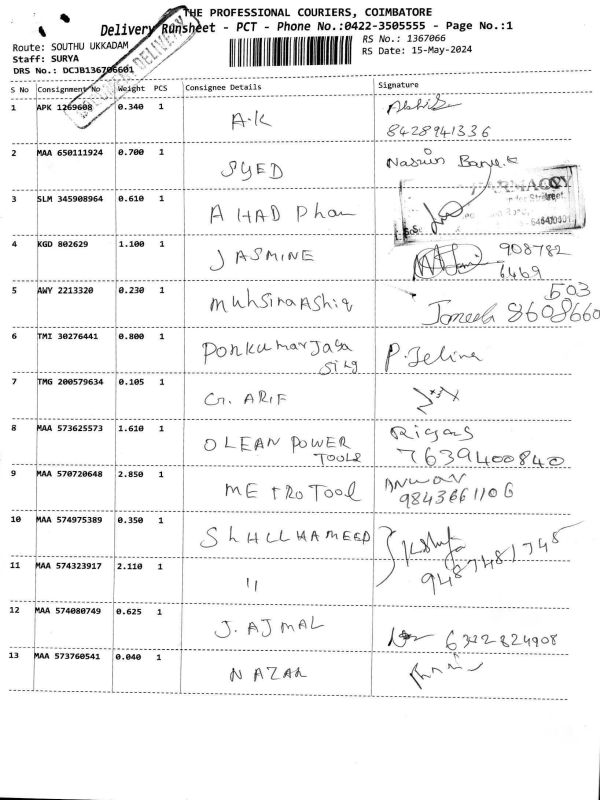 THE PROFESSIONAL COURIERS, COIMBATORE
Delivery Runsheet - PCT - Phone No.:0422-3505555 - Page No.:1
Route: SOUTHU UKKADAM
RS No.: 1367066
Staff: SURYA
RS Date: 15-May-2024
DRS No.: DCJB136706601
DELIVERY
S No Consignment No Weight PCS Consignee Details Signature
1 APK 1269608 0.340 1 A.K
8428941336
2 MAA 650111924 0.700 1 SYED Nasrin
PHARMACY
3 SLM 345908964 0.610 1 AHAD Pham
4 KGD 802629 1.100 1 JASMINE 908782
6469
5 AWY 2213320 0.230 1 MuhsinaAshiq 503
8608660
6 TMI 30276441 0.800 1 Ponkumar Jaya P. Jelina
Sing
7 TMG 200579634 0.105 1 G. ARIF
8 MAA 573625573 1.610 1 OLEAN POWER Riyas
TOOLS 7639400840
9 MAA 570720648 2.850 1 METRO TOOl Anwar
9843661106
10 MAA 574975389 0.350 1 SHAHUL HAMEED
9487481745
11 MAA 574323917 2.110 1 "
12 MAA 574080749 0.625 1 J. AJMAL 6382824908
13 MAA 573760541 0.040 1 NAZAR